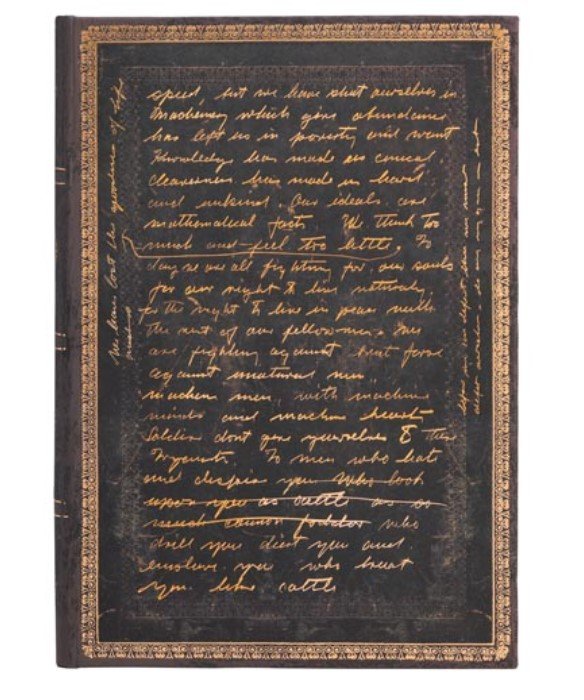 speed, but we have shut ourselves in
machinery which gives abundance
has left us in poverty and want
Knowledge has made us cynical,
cleverness has made us hard
and unkind. Our ideals are
mathematical facts We think too
much and feel too little. To
day we are all fighting for our souls
for our right to live naturaly,
for the right to live in peace with
the rest of our fellowmen. We
are fighting against brut force
against unatural men
machine men with machine
minds and machine hearts
Soldiers dont give yourselves to these
To men who hate
and despise you who look
upon you as cattle as so
much cannon fodder who
drill you diet you and
enslave you who treat
you like cattle
We have lost the of life